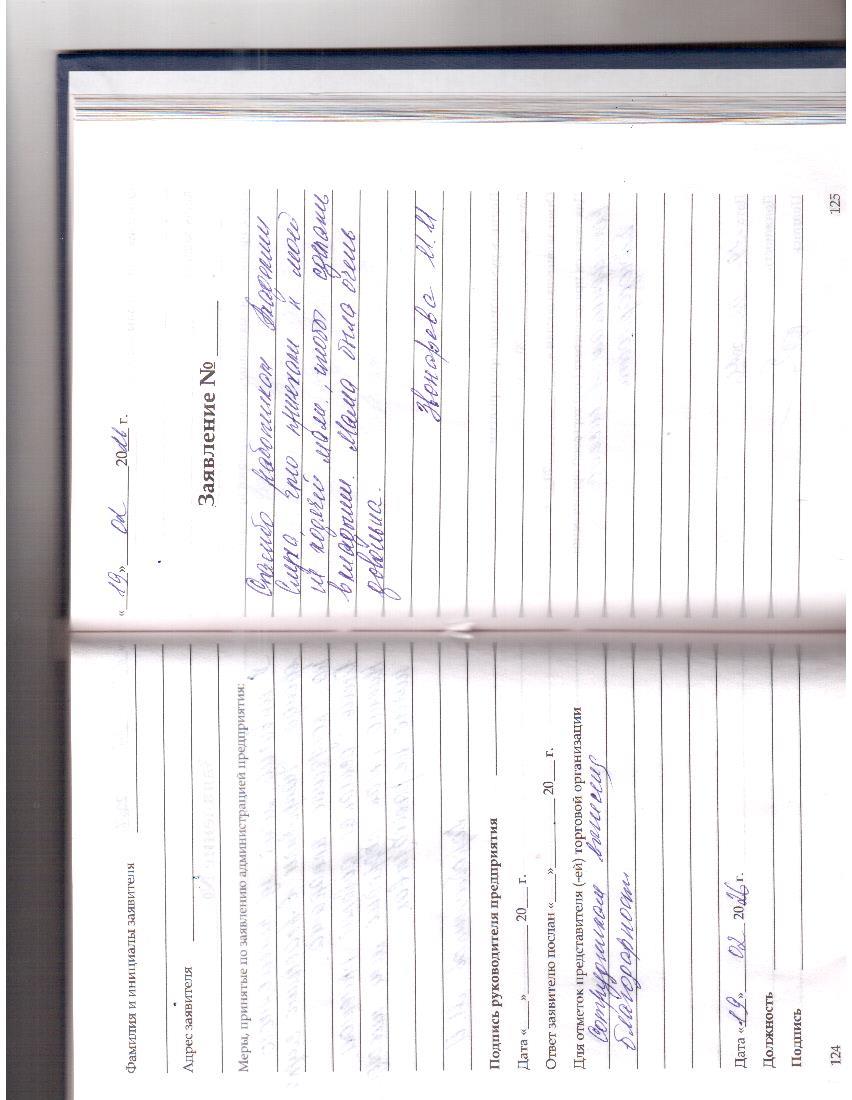 Фамилия и инициалы заявителя
Адрес заявителя
Меры, принятые по заявлению администрацией предприятия:
Подпись руководителя предприятия
Дата «___» ______ 20___ г.
Ответ заявителю послан «___» ______ 20___ г.
Для отметок представителя (-ей) торговой организации
Сотрудникам вынесена
благодарность
Дата «19» 02 2026 г.
Должность
Подпись
124
«19» 02 20 г.
Заявление № ____
Спасибо работникам
Слуха что приехали к моей
маме, чтобы сделать
вкладыши. Мама была очень
довольна.
Звонарева М.М
125